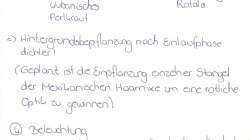 Kubanisches Rotala
Perlkraut
c) Hintergrundsbepflanzung nach Einlaufphase
dichter!
(Geplant ist die Einpflanzung einzelner Stängel
der Mexikanischen Haarnixe um eine rötliche
Optik zu gewinnen)
④ Beleuchtung